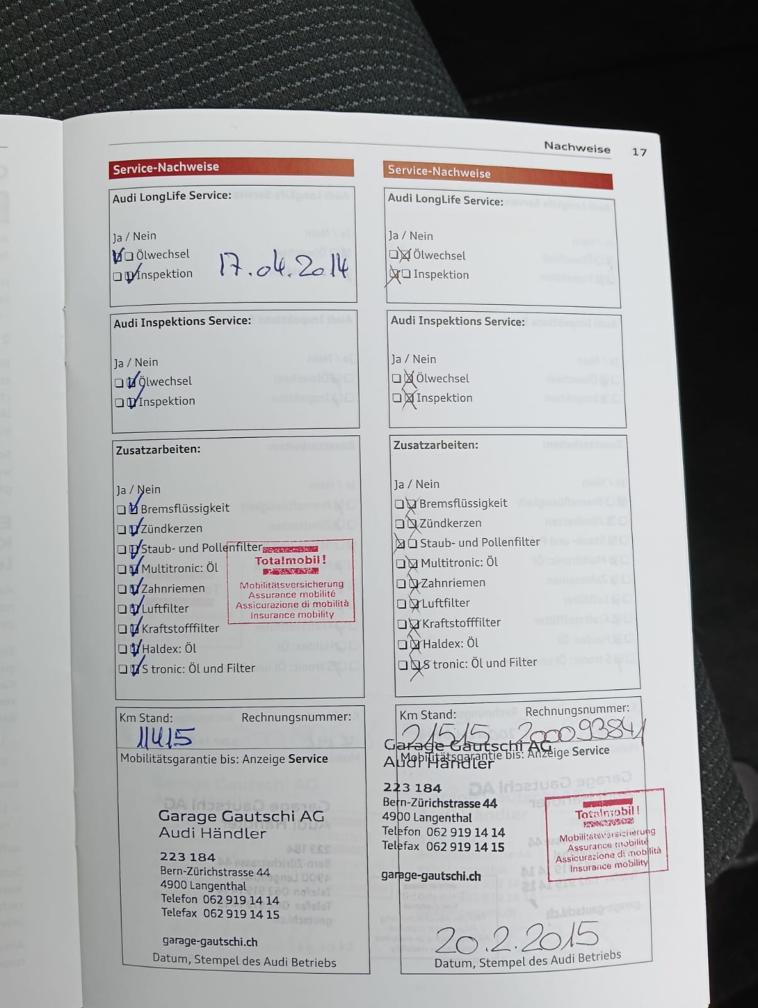 Nachweise 17
Service-Nachweise
Audi LongLife Service:
Ja / Nein
Ölwechsel
Inspektion
17.04.2014
Audi Inspektions Service:
Ja / Nein
Ölwechsel
Inspektion
Zusatzarbeiten:
Ja / Nein
Bremsflüssigkeit
Zündkerzen
Staub- und Pollenfilter
Multitronic: Öl
Zahnriemen
Luftfilter
Kraftstofffilter
Haldex: Öl
S tronic: Öl und Filter
Totalmobil!
Mobilitätsversicherung
Assurance mobilité
Assicurazione di mobilità
Insurance mobility
Km Stand: Rechnungsnummer:
11415
Mobilitätsgarantie bis: Anzeige Service
Garage Gautschi AG
Audi Händler
223 184
Bern-Zürichstrasse 44
4900 Langenthal
Telefon 062 919 14 14
Telefax 062 919 14 15
garage-gautschi.ch
Datum, Stempel des Audi Betriebs
Service-Nachweise
Audi LongLife Service:
Ja / Nein
Ölwechsel
Inspektion
Audi Inspektions Service:
Ja / Nein
Ölwechsel
Inspektion
Zusatzarbeiten:
Ja / Nein
Bremsflüssigkeit
Zündkerzen
Staub- und Pollenfilter
Multitronic: Öl
Zahnriemen
Luftfilter
Kraftstofffilter
Haldex: Öl
S tronic: Öl und Filter
Km Stand: Rechnungsnummer:
21515 200093841
Garage Gautschi AG
Mobilitätsgarantie bis: Anzeige Service
Audi Händler
223 184
Bern-Zürichstrasse 44
4900 Langenthal
Telefon 062 919 14 14
Telefax 062 919 14 15
garage-gautschi.ch
Totalmobil!
Mobilitätsversicherung
Assurance mobilité
Assicurazione di mobilità
Insurance mobility
20.2.2015
Datum, Stempel des Audi Betriebs